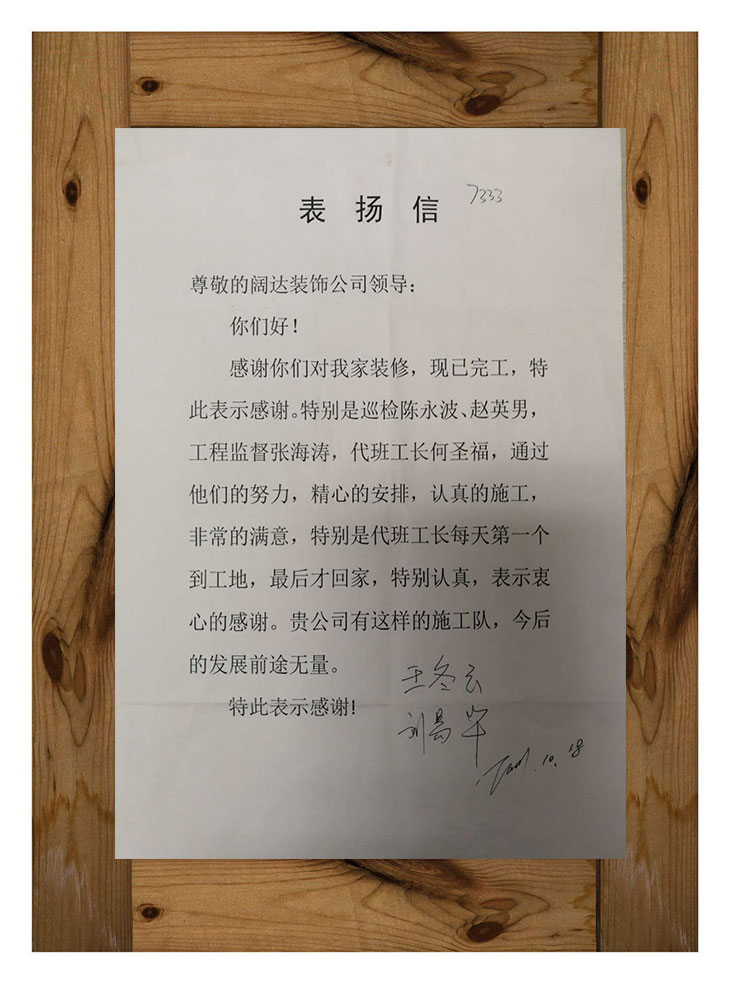 表 扬 信 7333
尊敬的阔达装饰公司领导：
你们好！
感谢你们对我家装修，现已完工，特
此表示感谢。特别是巡检陈永波、赵英男，
工程监督张海涛，代班工长何圣福，通过
他们的努力，精心的安排，认真的施工，
非常的满意，特别是代班工长每天第一个
到工地，最后才回家，特别认真，表示衷
心的感谢。贵公司有这样的施工队，今后
的发展前途无量。
特此表示感谢！
王冬云
刘 华
10.18